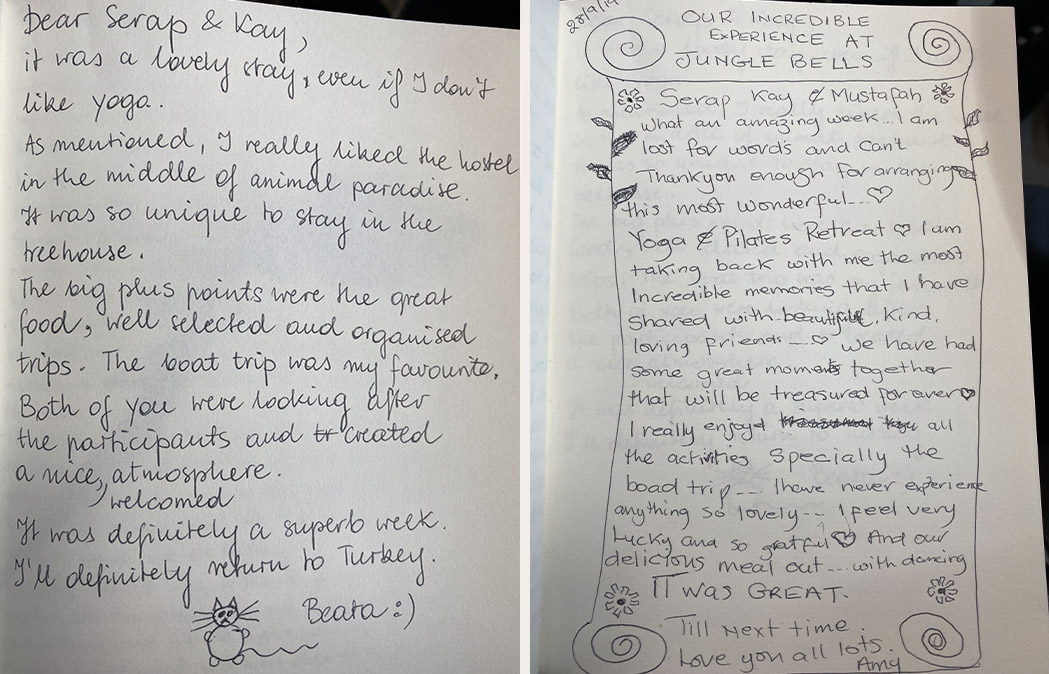 Dear Serap & Kay,
it was a lovely stay, even if I don't
like yoga.
As mentioned, I really liked the hostel
in the middle of animal paradise.
It was so unique to stay in the
treehouse.
The big plus points were the great
food, well selected and organised
trips. The boat trip was my favourite.
Both of you were looking after
the participants and created
a nice, atmosphere.
welcomed
It was definitely a superb week.
I'll definitely return to Turkey.
Beata :)
28/9/19
OUR INCREDIBLE
EXPERIENCE AT
JUNGLE BELLS
Serap Kay & Mustafah
What an amazing week... I am
lost for words and can't
Thankyou enough for arranging
this most wonderful... ♡
Yoga & Pilates Retreat ♡ I am
taking back with me the most
Incredible memories that I have
shared with beautiful, kind,
loving friends... ♡ we have had
some great moments together
that will be treasured for ever ♡
I really enjoyd all
the activities Specially the
boad trip -- I have never experience
anything so lovely -- I feel very
Lucky and so gratful ♡ And our
delicious meal out --- with dancing
IT WAS GREAT.
Till Next time.
Love you all lots.
Amy